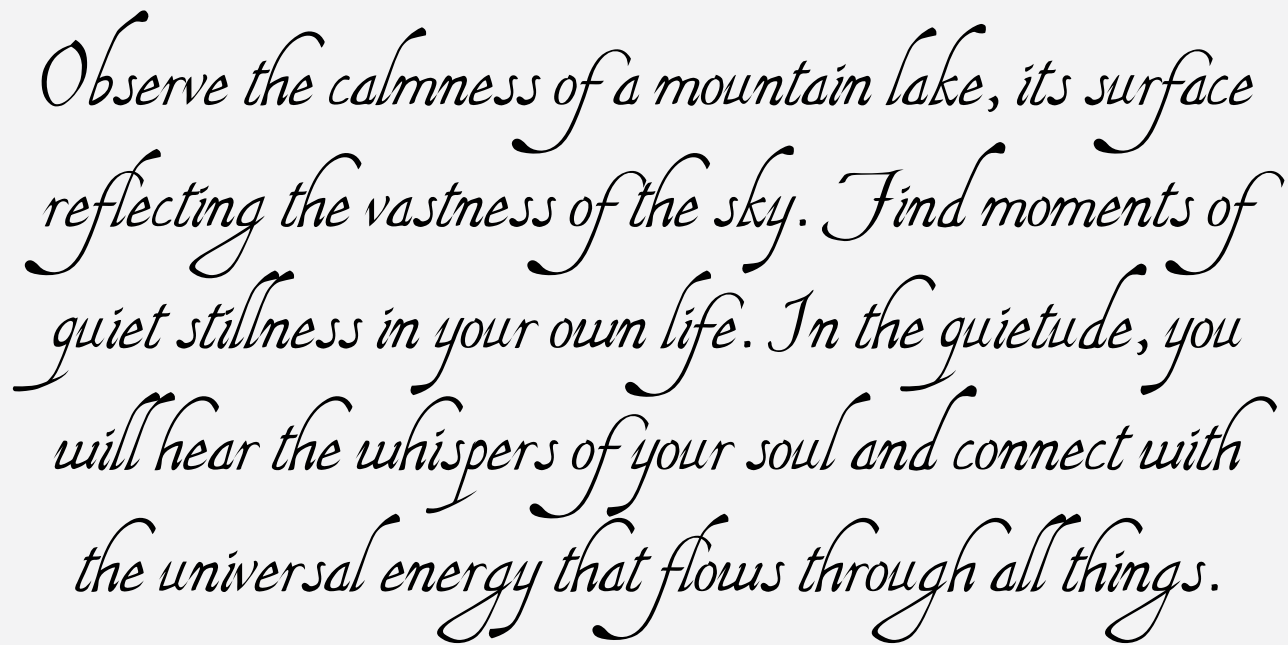 Observe the calmness of a mountain lake, its surface
reflecting the vastness of the sky. Find moments of
quiet stillness in your own life. In the quietude, you
will hear the whispers of your soul and connect with
the universal energy that flows through all things.